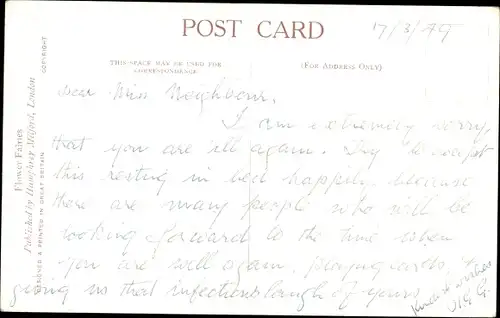 POST CARD
17/3/79
THIS SPACE MAY BE USED FOR
CORRESPONDENCE
(FOR ADDRESS ONLY)
Flower Fairies
Published by Humphrey Milford, London
DESIGNED & PRINTED IN GREAT BRITAIN
COPYRIGHT
Dear Miss Neighbour,
I am extremely sorry,
that you are ill again. Try to accept
this resting in bed happily, because
there are many people who will be
looking forward to the time when
you are well again, playing cards, &
giving us that infectious laugh of yours.
Kindest wishes